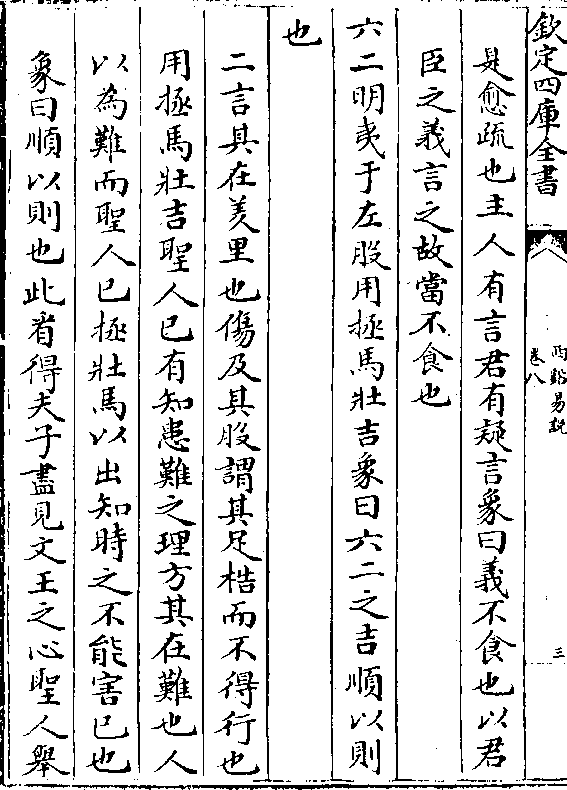 欽定四庫全書
西谿易說
卷八
三
是愈疏也主人有言君有疑言象曰義不食也以君
臣之義言之故當不食也
六二明夷于左股用拯馬壯吉象曰六二之吉順以則
也
二言其在羑里也傷及其股謂其足梏而不得行也
用拯馬壯吉聖人已有知患難之理方其在難也人
以為難而聖人已拯壯馬以出知時之不能害已也
象曰順以則也此省得夫子盡見文王之心聖人舉